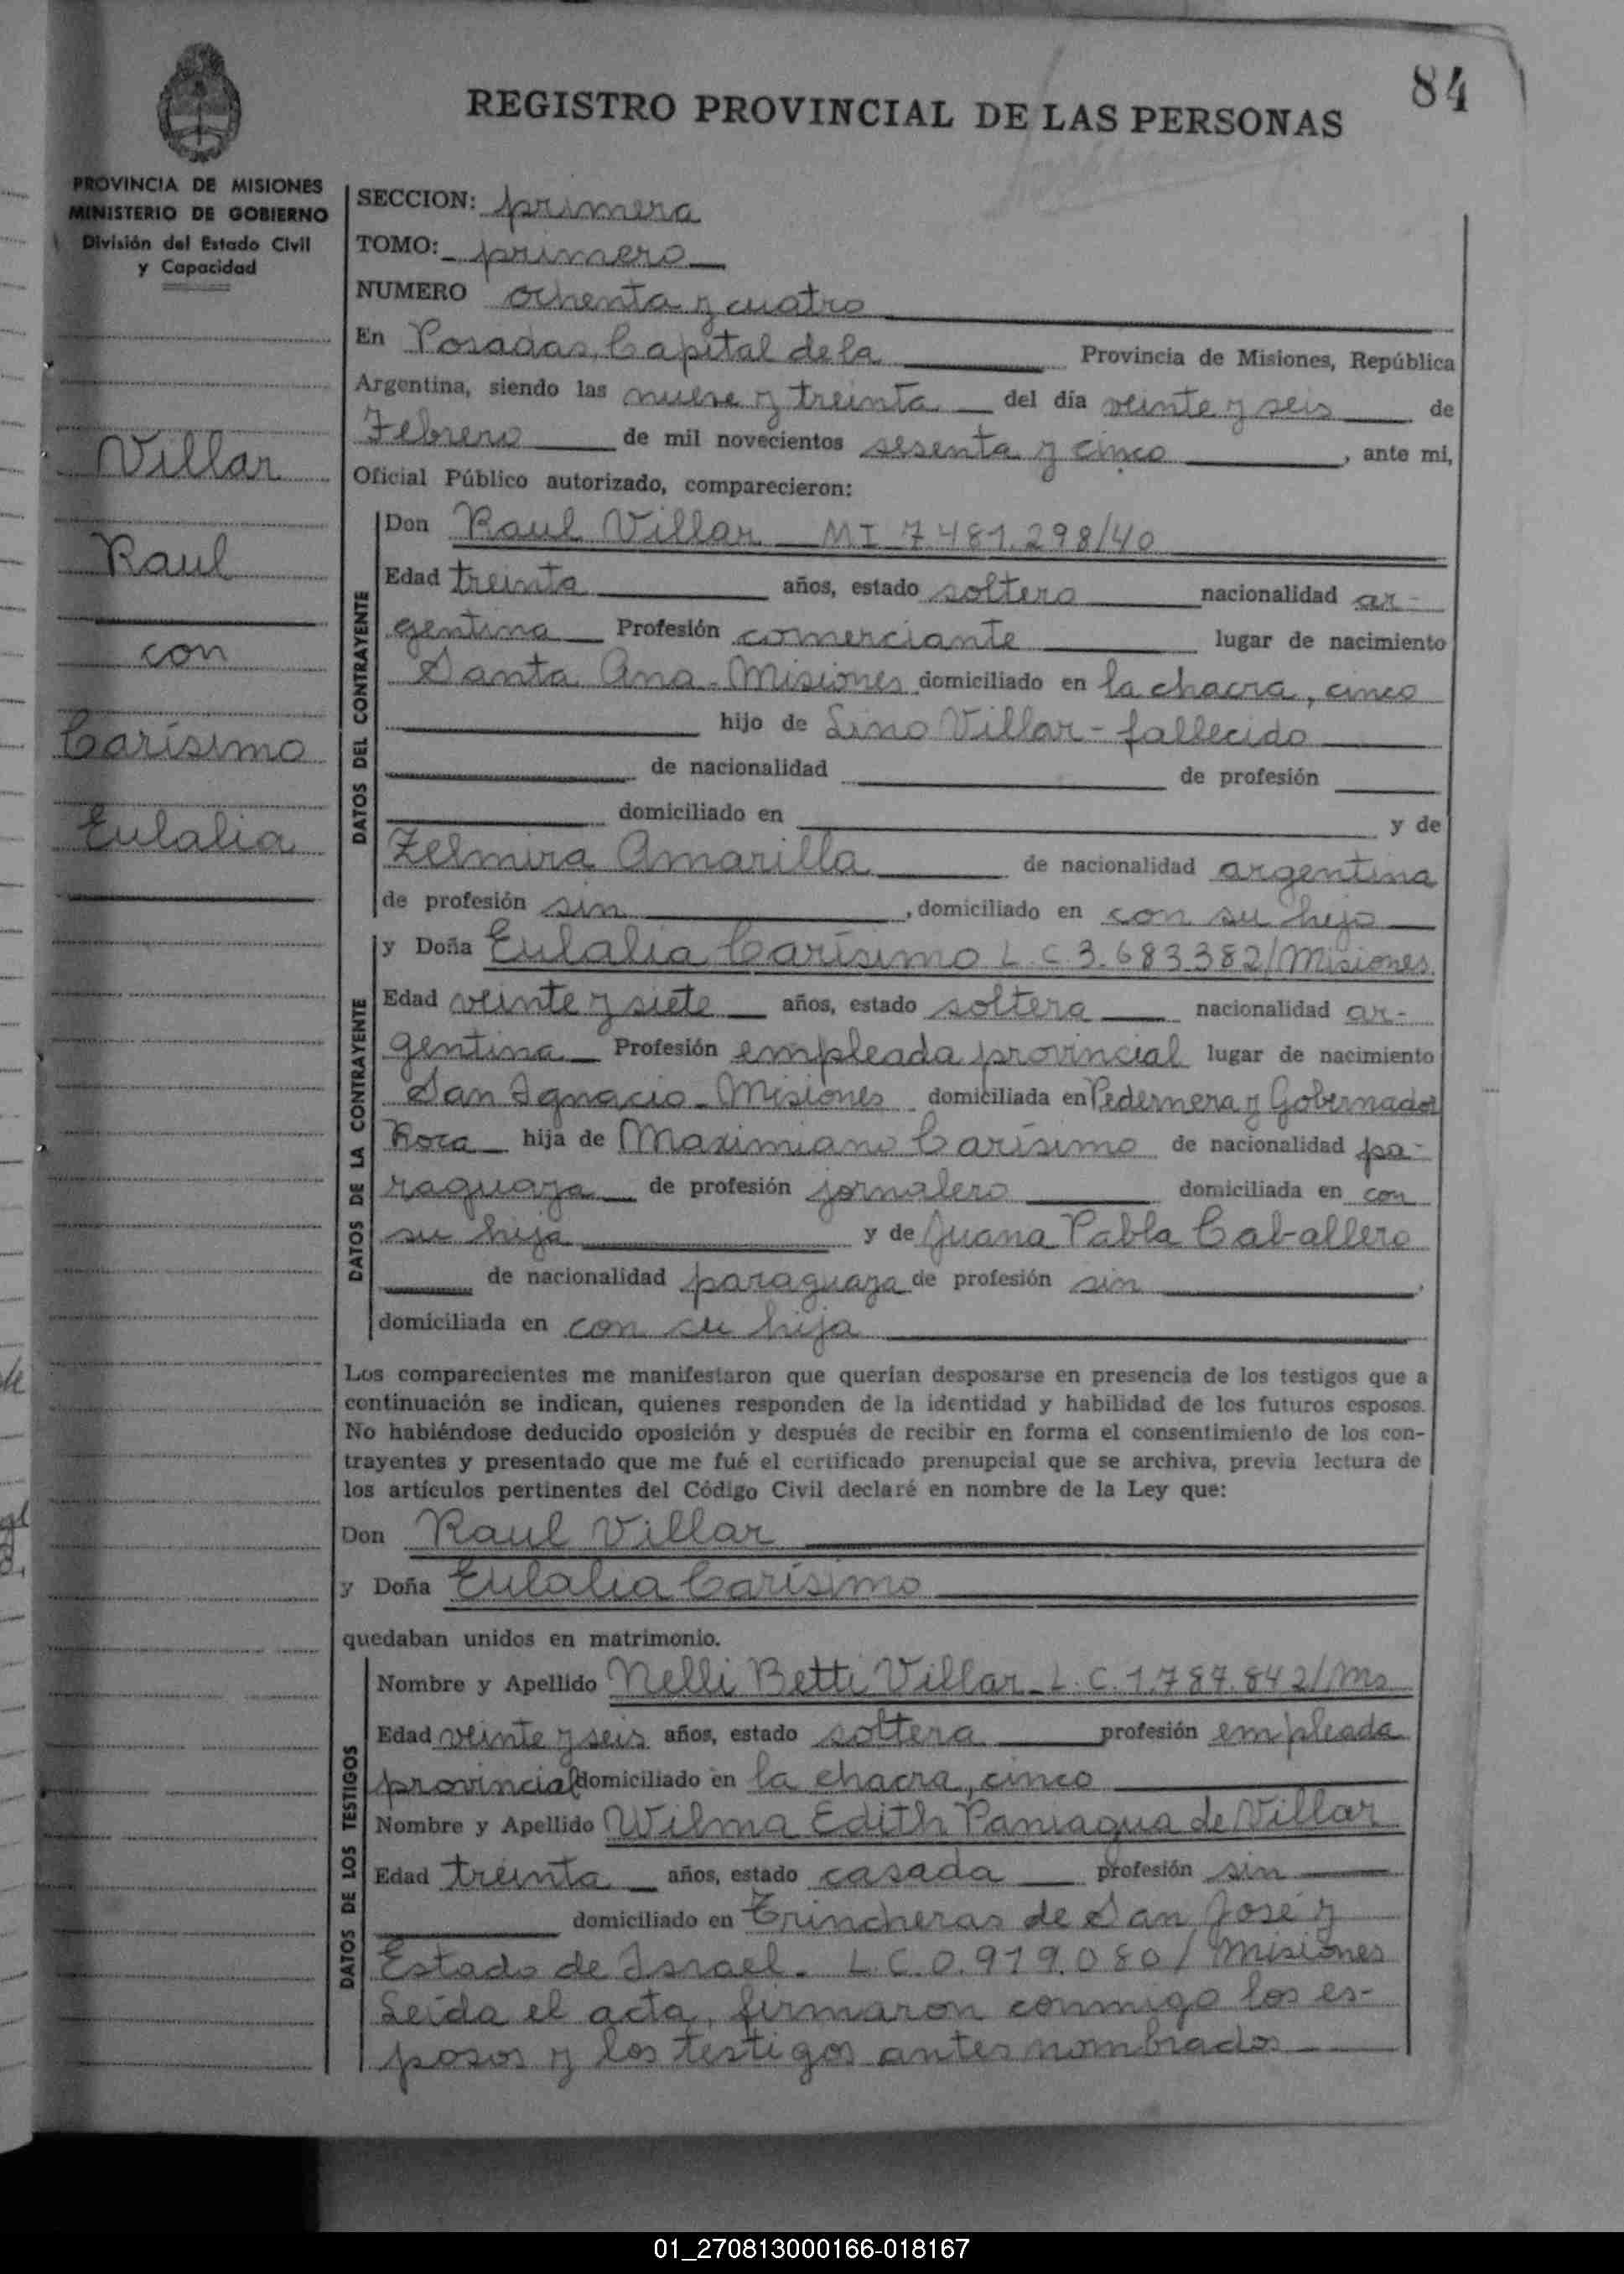 84
REGISTRO PROVINCIAL DE LAS PERSONAS
PROVINCIA DE MISIONES
MINISTERIO DE GOBIERNO
División del Estado Civil
y Capacidad
Villar
Raul
con
Carísimo
Eulalia
SECCION: primera
TOMO: primero
NUMERO ochenta y cuatro
En Posadas, Capital de la Provincia de Misiones, República
Argentina, siendo las nueve y treinta del día veinte y seis de
Febrero de mil novecientos sesenta y cinco, ante mi,
Oficial Público autorizado, comparecieron:
DATOS DEL CONTRAYENTE
Don Raul Villar MI 7.481.298/40
Edad treinta años, estado soltero nacionalidad ar-
gentina Profesión comerciante lugar de nacimiento
Santa Ana - Misiones domiciliado en la chacra, cinco
hijo de Lino Villar - fallecido
de nacionalidad de profesión
domiciliado en y de
Zelmira Amarilla de nacionalidad argentina
de profesión sin, domiciliado en con su hijo
DATOS DE LA CONTRAYENTE
y Doña Eulalia Carísimo L.C. 3.683.382/Misiones
Edad veinte y siete años, estado soltera nacionalidad ar-
gentina Profesión empleada provincial lugar de nacimiento
San Ignacio - Misiones domiciliada en Pedernera y Gobernador
Roca hija de Maximiano Carísimo de nacionalidad pa-
raguaya de profesión jornalero domiciliada en con
su hija y de Juana Pabla Caballero
de nacionalidad paraguaya de profesión sin,
domiciliada en con su hija
Los comparecientes me manifestaron que querían desposarse en presencia de los testigos que a
continuación se indican, quienes responden de la identidad y habilidad de los futuros esposos.
No habiéndose deducido oposición y después de recibir en forma el consentimiento de los con-
trayentes y presentado que me fué el certificado prenupcial que se archiva, previa lectura de
los artículos pertinentes del Código Civil declaré en nombre de la Ley que:
Don Raul Villar
y Doña Eulalia Carísimo
quedaban unidos en matrimonio.
DATOS DE LOS TESTIGOS
Nombre y Apellido Nelli Betti Villar - L.C. 1.787.842/Ms
Edad veinte y seis años, estado soltera profesión empleada
provincial domiciliado en la chacra, cinco
Nombre y Apellido Wilma Edith Paniagua de Villar
Edad treinta años, estado casada profesión sin
domiciliado en Trincheras de San José y
Estado de Israel. L.C. 0.919.080/Misiones
Leída el acta, firmaron conmigo los es-
posos y los testigos antes nombrados
01_270813000166-018167